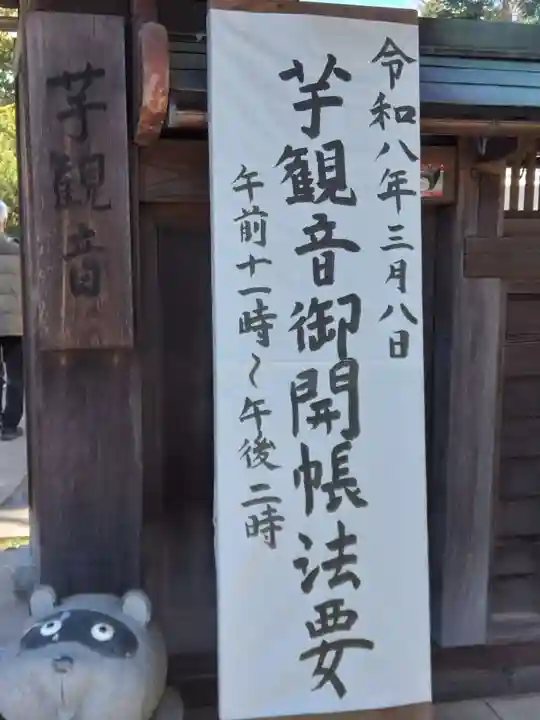 令和八年三月八日
芋観音御開帳法要
午前十一時～午後二時
芋観音